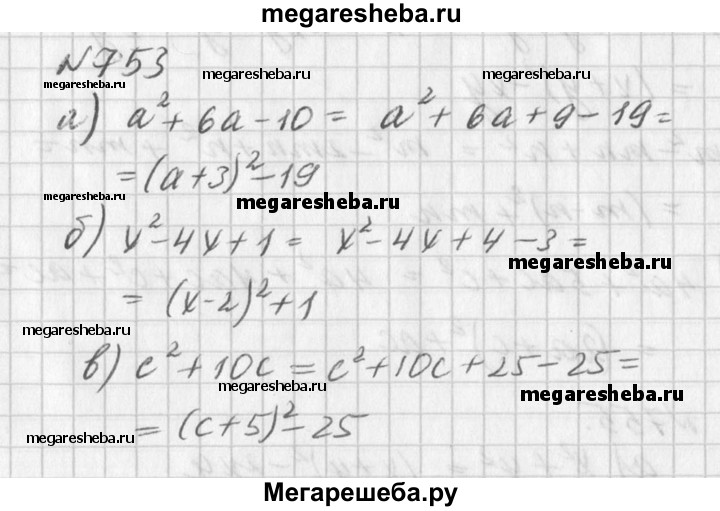 megaresheba.ru
№753
megaresheba.ru
megaresheba.ru
а) a²+6a-10= a²+6a+9-19=
megaresheba.ru
=(a+3)²-19
megaresheba.ru
megaresheba.ru
б) x²-4x+1= x²-4x+4-3=
megaresheba.ru
= (x-2)²+1
megaresheba.ru
в) c²+10c=c²+10c+25-25=
megaresheba.ru
megaresheba.ru
= (c+5)²-25
megaresheba.ru
megaresheba.ru
Мегарешеба.ру